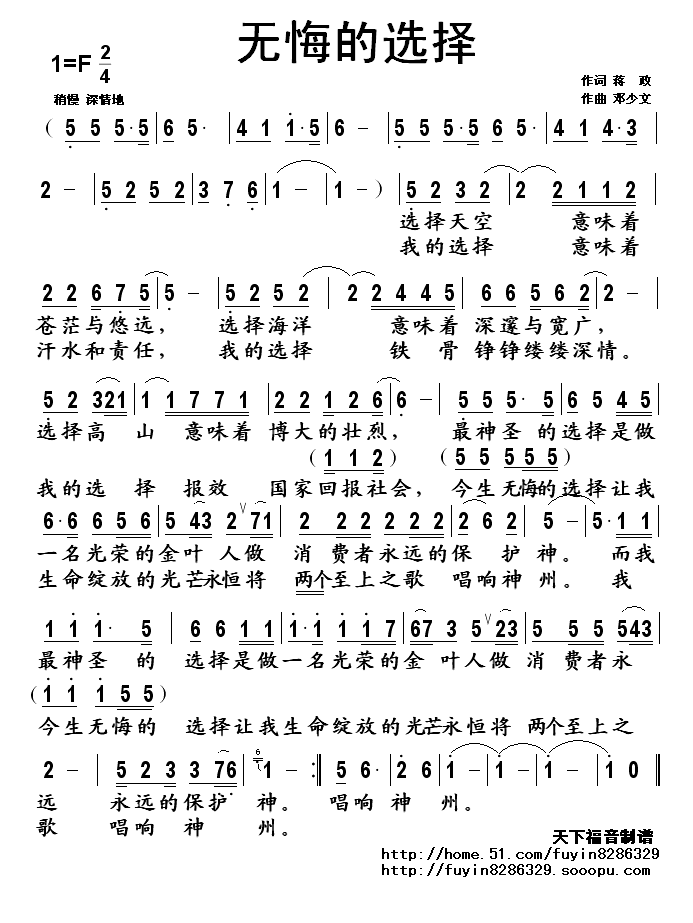 无悔的选择
1=F 2/4
作词 蒋 政
稍慢 深情地
作曲 邓少文
( 5 5 5·5 | 6 5· | 4 1 1·5 | 6 – | 5 5 5·5 | 6 5· | 4 1 4·3 |
2 – | 5 2 5 2 | 3 7 6 | 1 – | 1 – ) | 5 2 3 2 | 2 2 1 1 2 |
选择天空 意味着
我的选择 意味着
2 2 6 7 5 | 5 – | 5 2 5 2 | 2 2 4 4 5 | 6 6 5 6 2 | 2 – |
苍茫与悠远， 选择海洋 意味着 深邃与宽广，
汗水和责任， 我的选择 铁 骨 铮铮缕缕深情。
5 2 321 | 1 1 7 7 1 | 2 2 2 1 2 6 | 6 – | 5 5 5· 5 | 6 5 4 5 |
选择高 山 意味着 博大的壮烈， 最神圣 的选择是做
( 1 1 2 ) ( 5 5 5 5 5 )
我的选 择 报效 国家回报社会，今生无悔的选择让我
6·6 6 5 6 | 5 43 2 ∨71 | 2 2 2 2 2 | 2 6 2 | 5 – | 5· 1 1 |
一名光荣的金叶 人做 消 费者永远的保 护 神。 而我
生命绽放的光芒永恒将 两个至上之歌 唱响神 州。 我
1 1 1· 5 | 6 6 1 1 | 1·1 1 1 7 | 67 3 5 ∨23 | 5 5 5 543 |
最神圣 的 选择是做一名光荣的金 叶人做 消 费者永
( 1 1 1 5 5 )
今生无悔的 选择让我生命绽放的光芒永恒将 两个至上之
2 – | 5 2 3 3 76 | 6 1 – :‖ 5 6· | 2 6 | 1 – | 1 – | 1 0 ‖
远 永远的保护 神。 唱响 神 州。
歌 唱响 神 州。
天下福音制谱
http://home.51.com/fuyin8286329
http://fuyin8286329.sooopu.com